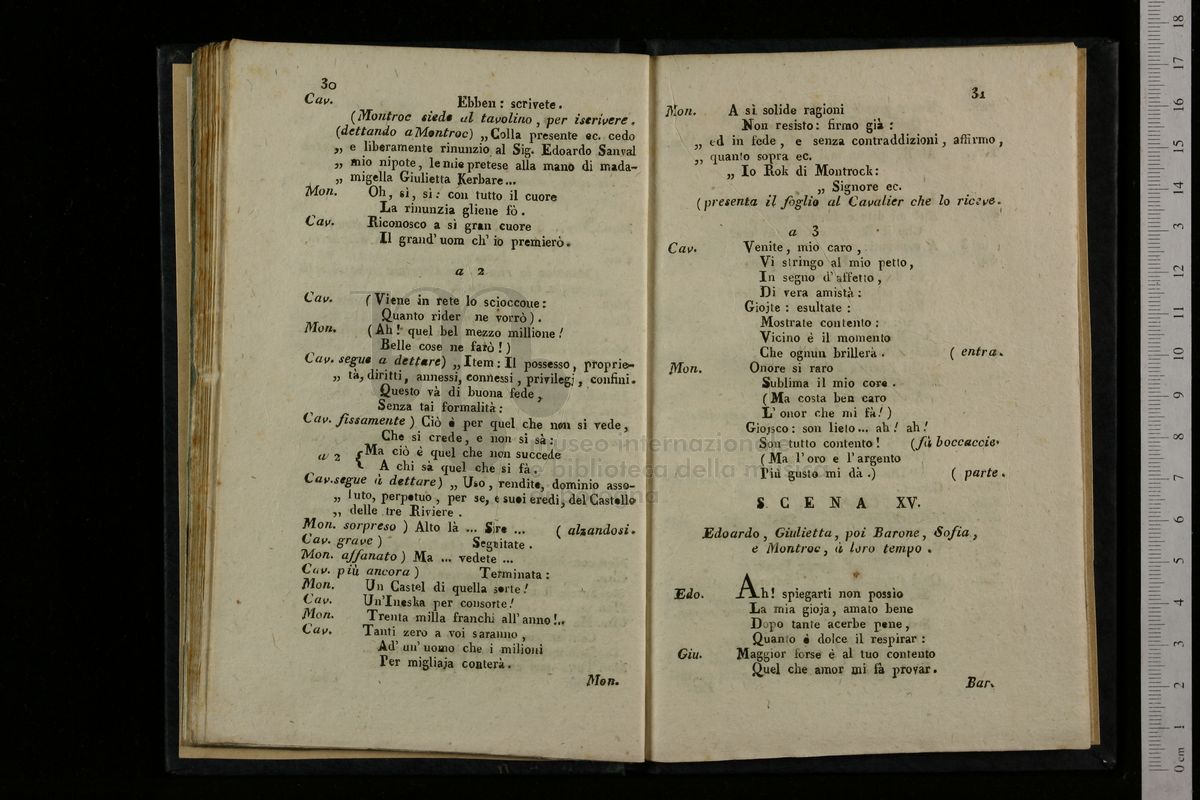 30
Cav. Ebben: scrivete.
(Montroc siede al tavolino, per iscrivere.
(dettando a Montroc) „Colla presente ec. cedo
„ e liberamente rinunzio al Sig. Edoardo Sanval
„ mio nipote, le mie pretese alla mano di mada-
„ migella Giulietta Kerbare...
Mon. Oh, si, si: con tutto il cuore
La rinunzia gliene fò.
Cav. Riconosco a sì gran cuore
Il grand' uom ch' io premierò.
a 2
Cav. (Viene in rete lo scioccone:
Quanto rider ne vorrò).
Mon. (Ah! quel bel mezzo millione!
Belle cose ne farò!)
Cav. segue a dettare) „Item: Il possesso, proprie-
„ tà, diritti, annessi, connessi, privilegj, confini.
Questo và di buona fede,
Senza tai formalità:
Cav. fissamente) Ciò è per quel che non si vede,
Che si crede, e non si sà:
a 2 { Ma ciò è quel che non succede
A chi sà quel che si fà.
Cav. segue à dettare) „ Uso, rendite, dominio asso-
„ luto, perpetuo, per se, e suoi eredi, del Castello
„ delle tre Riviere.
Mon. sorpreso) Alto là ... Sire ... (alzandosi.
Cav. grave) Seguitate.
Mon. affanato) Ma ... vedete ...
Cav. più ancora) Terminata:
Mon. Un Castel di quella sorte!
Cav. Un'Ineska per consorte!
Mon. Trenta milla franchi all' anno!..
Cav. Tanti zero a voi saranno,
Ad' un' uomo che i milioni
Per migliaja conterà.
Mon.
31
Mon. A sì solide ragioni
Non resisto: firmo già:
„ ed in fede, e senza contraddizioni, affirmo,
„ quanto sopra ec.
„ Io Rok di Montrock:
„ Signore ec.
(presenta il foglio al Cavalier che lo riceve.
a 3
Cav. Venite, mio caro,
Vi stringo al mio petto,
In segno d' affetto,
Di vera amistà:
Giojte: esultate:
Mostrate contento:
Vicino è il momento
Che ognun brillerà. (entra.
Mon. Onore sì raro
Sublima il mio core.
(Ma costa ben caro
L' onor che mi fà!)
Giojsco: son lieto... ah! ah!
Son tutto contento! (fà boccaccie.
(Ma l' oro e l' argento
Più gusto mi dà.) (parte.
SCENA XV.
Edoardo, Giulietta, poi Barone, Sofia,
e Montroc, à loro tempo.
Edo. Ah! spiegarti non possìo
La mia gioja, amato bene
Dopo tante acerbe pene,
Quanto è dolce il respirar:
Giu. Maggior forse è al tuo contento
Quel che amor mi fà provar.
Bar.
museo internazionale
e biblioteca della musica
0 cm 1 2 3 4 5 6 7 8 9 10 11 12 13 14 15 16 17 18